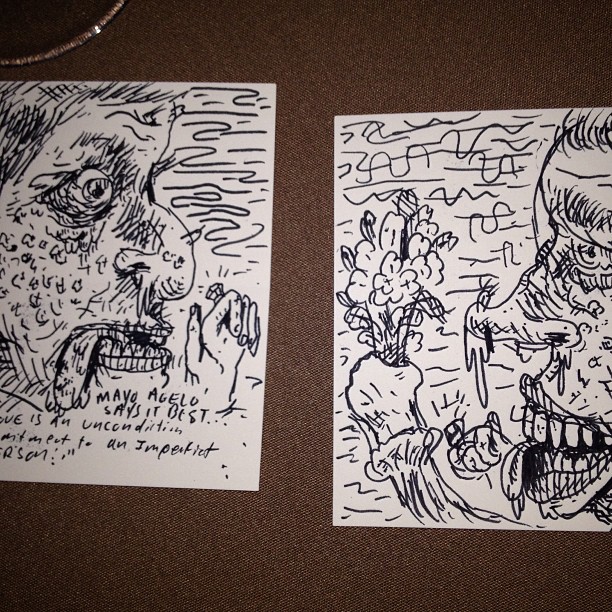 MAYO AGELO'
SAYS IT BEST...
OVE IS AN unconditin
mitment to an Imperfict
ERSON:,"